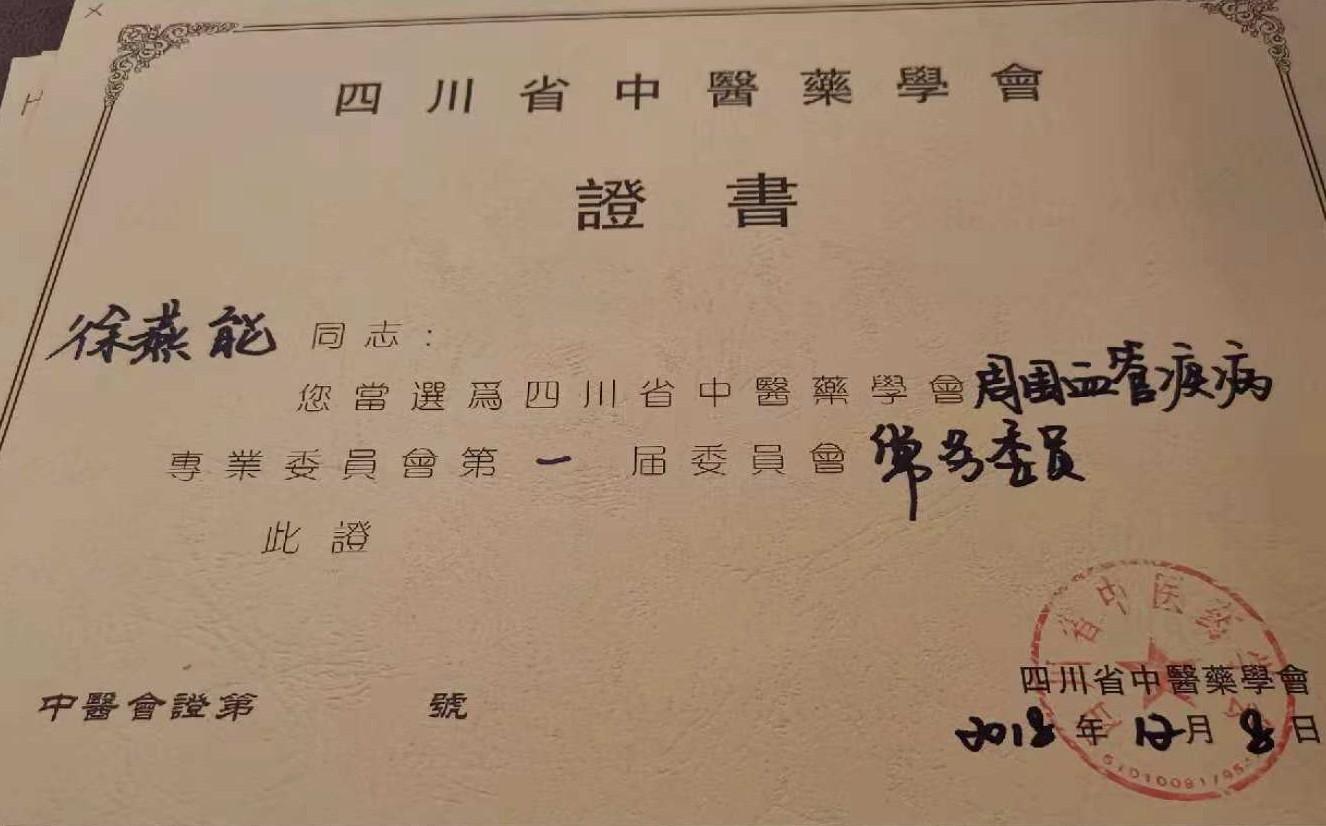 四川省中醫藥學會
證書
徐燕能同志：
您當選爲四川省中醫藥學會周围血管疾病
專業委員會第一届委員會常务委员
此證
中醫會證第 號
四川省中醫藥學會
2018年12月8日